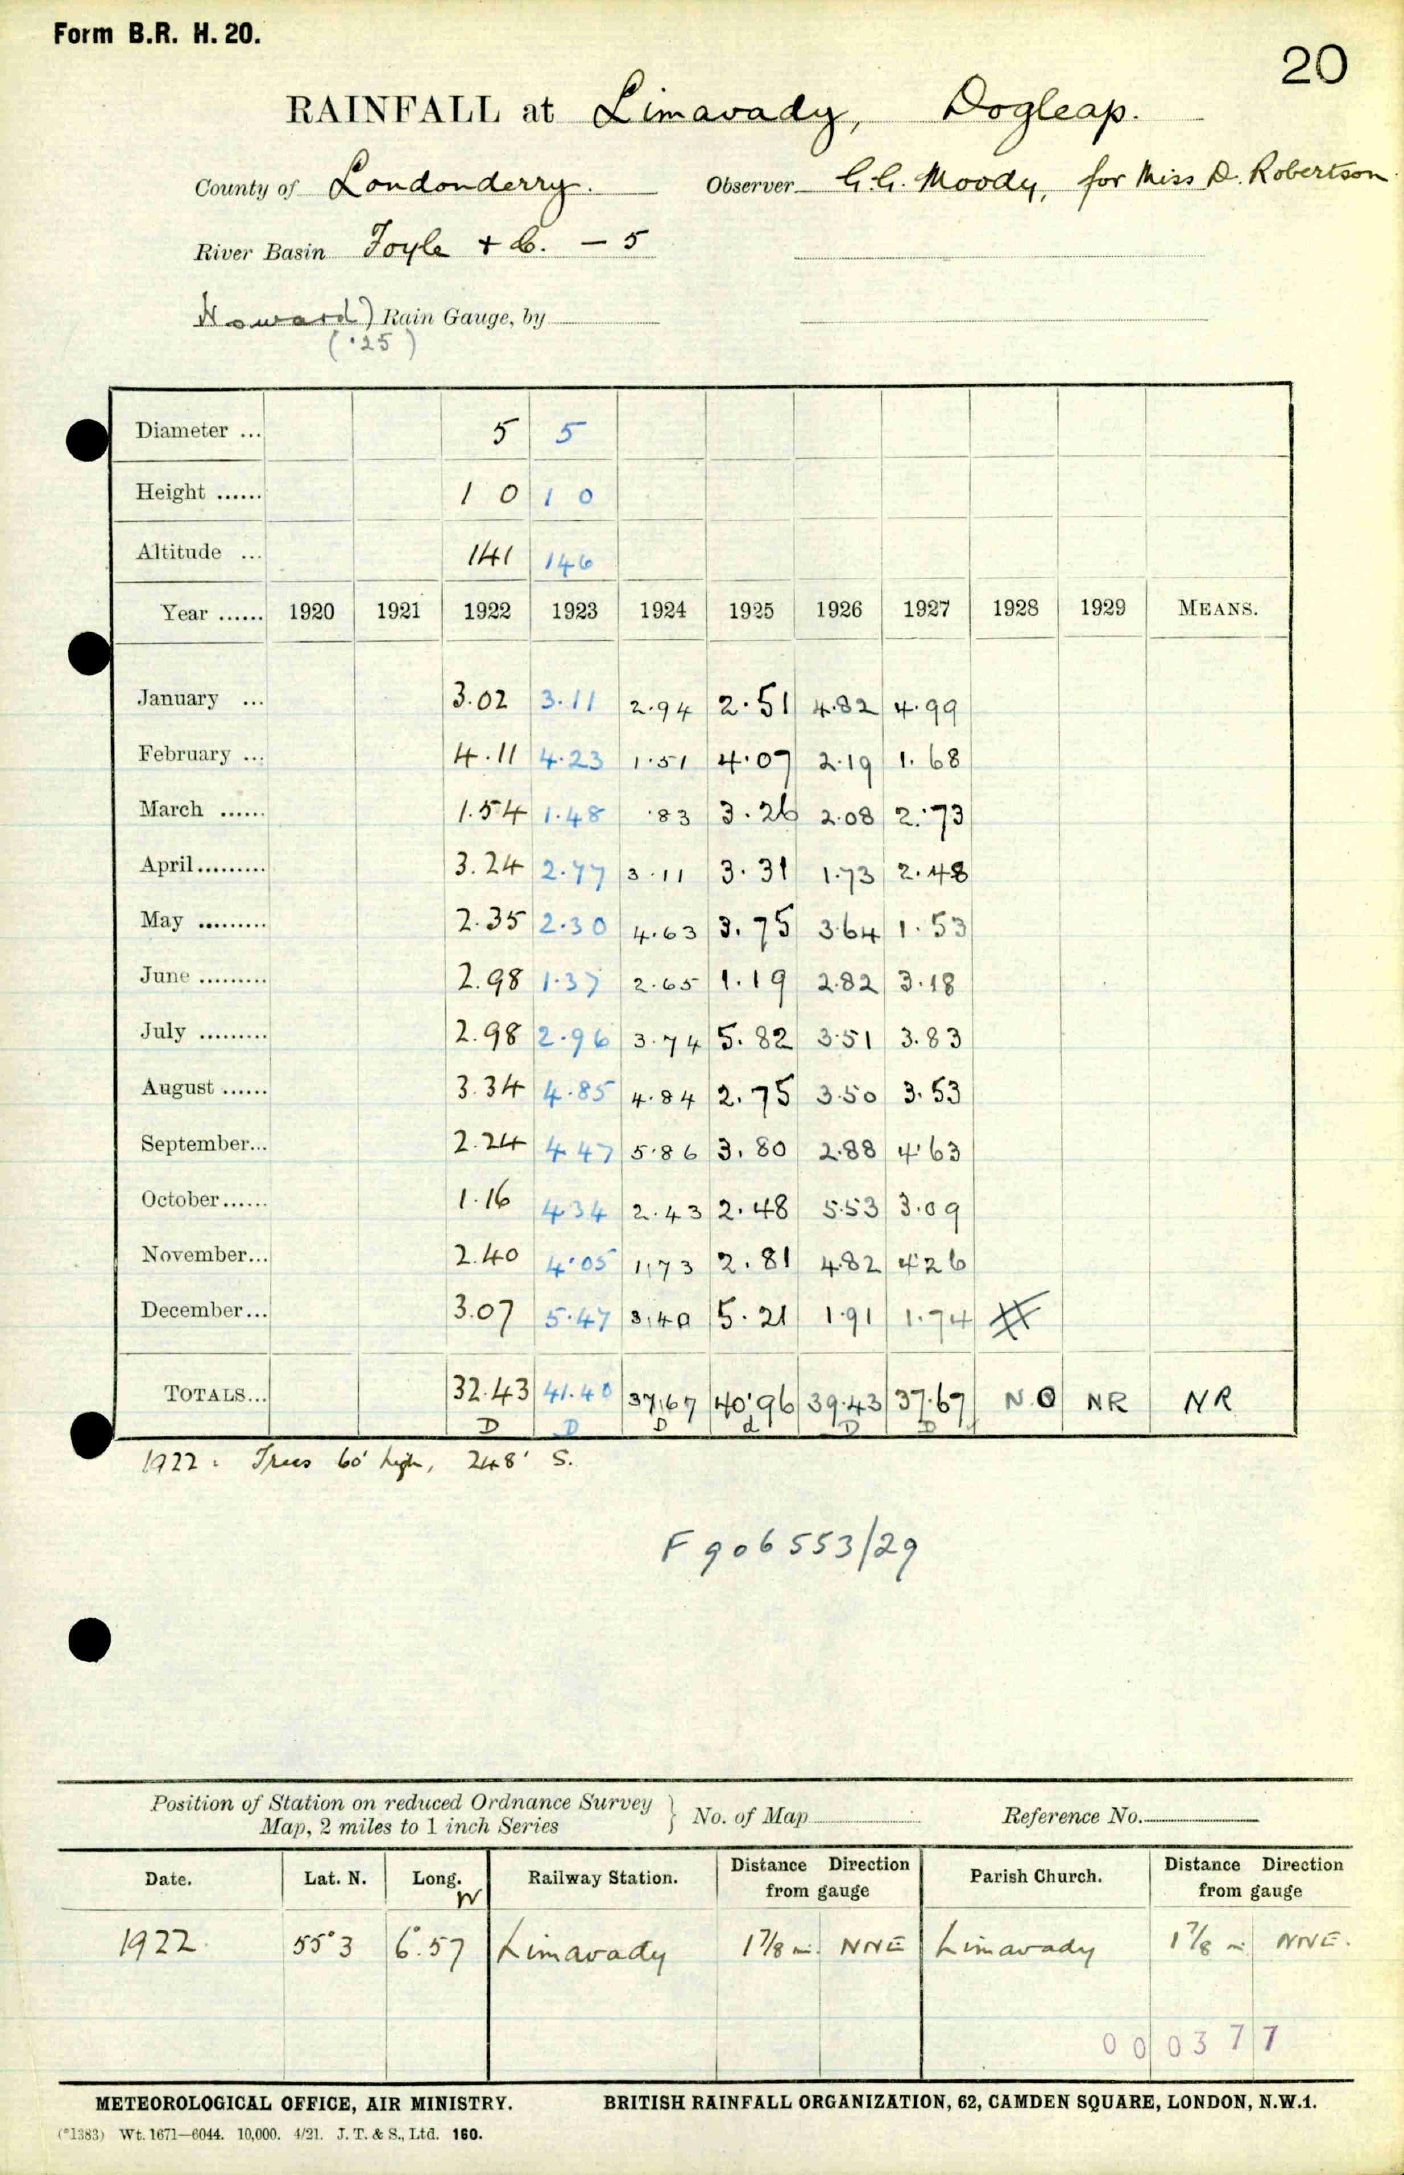 Form B.R. H. 20.
20
RAINFALL at Limavady, Dogleap.
County of Londonderry. Observer G.G. Moody, for Miss D. Robertson
River Basin Foyle + C. — 5
Howard) Rain Gauge, by
(·25)
Diameter ... 5 5
Height ...... 1 0 1 0
Altitude ... 141 146
Year ...... 1920 1921 1922 1923 1924 1925 1926 1927 1928 1929 MEANS.
January ... 3.02 3.11 2.94 2.51 4.82 4.99
February ... 4.11 4.23 1.51 4.07 2.19 1.68
March ...... 1.54 1.48 .83 3.26 2.08 2.73
April......... 3.24 2.77 3.11 3.31 1.73 2.48
May ......... 2.35 2.30 4.63 3.75 3.64 1.53
June ......... 2.98 1.37 2.65 1.19 2.82 3.18
July ......... 2.98 2.96 3.74 5.82 3.51 3.83
August ...... 3.34 4.85 4.84 2.75 3.50 3.53
September... 2.24 4.47 5.86 3.80 2.88 4.63
October...... 1.16 4.34 2.43 2.48 5.53 3.09
November... 2.40 4.05 1.73 2.81 4.82 4.26
December... 3.07 5.47 3.40 5.21 1.91 1.74
TOTALS... 32.43 41.40 37.67 40.96 39.43 37.67 N O NR NR
D D D d D D
1922 : Trees 60' high, 248' S.
F 906553/29
Position of Station on reduced Ordnance Survey
Map, 2 miles to 1 inch Series } No. of Map Reference No.
Date. Lat. N. Long. W Railway Station. Distance Direction from gauge Parish Church. Distance Direction from gauge
1922. 55°3 6°.57 Limavady 1 7/8 m. NNE Limavady 1 7/8 m NNE.
000377
METEOROLOGICAL OFFICE, AIR MINISTRY. BRITISH RAINFALL ORGANIZATION, 62, CAMDEN SQUARE, LONDON, N.W.1.
(*1383) Wt. 1671—6044. 10,000. 4/21. J. T. & S., Ltd. 160.